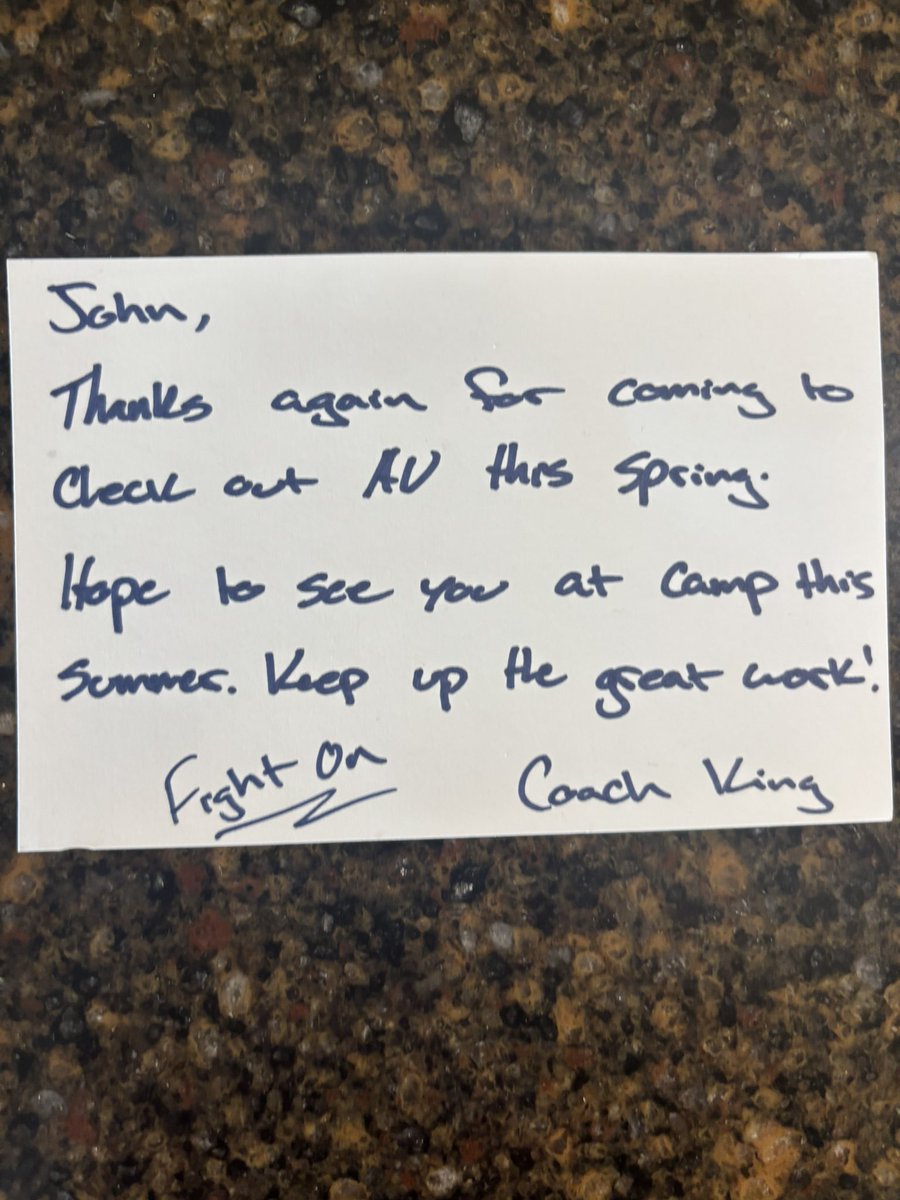 John,
Thanks again for coming to
Check out AU this Spring.
Hope to see you at Camp this
Summer. Keep up the great work!
Fight On
Coach King